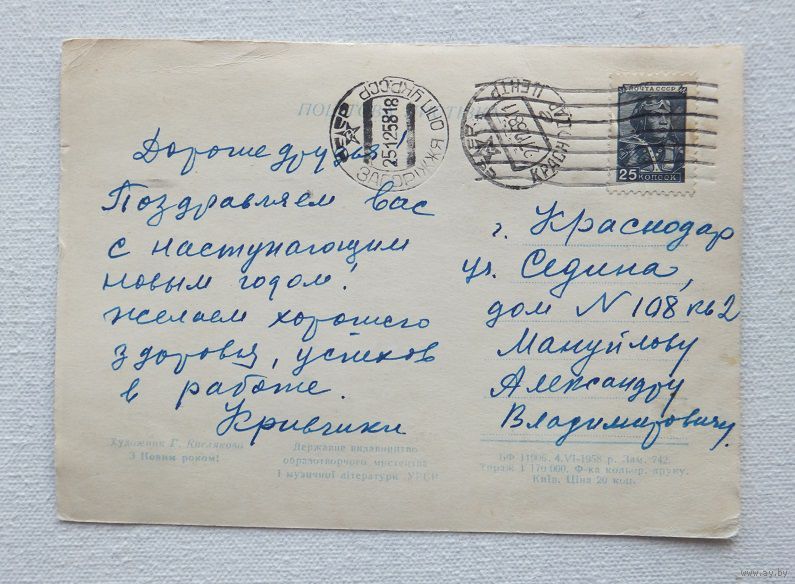 ПОШТОВА
ПОЧТА СССР
25 КОПЕЕК
УКРССР
25125818
КРАСНОДАР
ЦЕНТР
Дорогие друзья!
Поздравляем вас
с наступающим
новым годом!
желаем хорошего
здоровья, успехов
в работе.
Кривчики
г. Краснодар
ул. Седина,
дом N 108 кв 2
Мануйлову
Александру
Владимировичу.
Художник Г. Кислякова
З Новим роком!
Державне видавництво
образотворчого мистецтва
і музичної літератури УРСР
БФ 11906. 4.VI-1958 р. Зам. 742.
Тираж 1 170 000. Ф-ка кольор. друку.
Київ. Ціна 20 коп.
www.ay.by